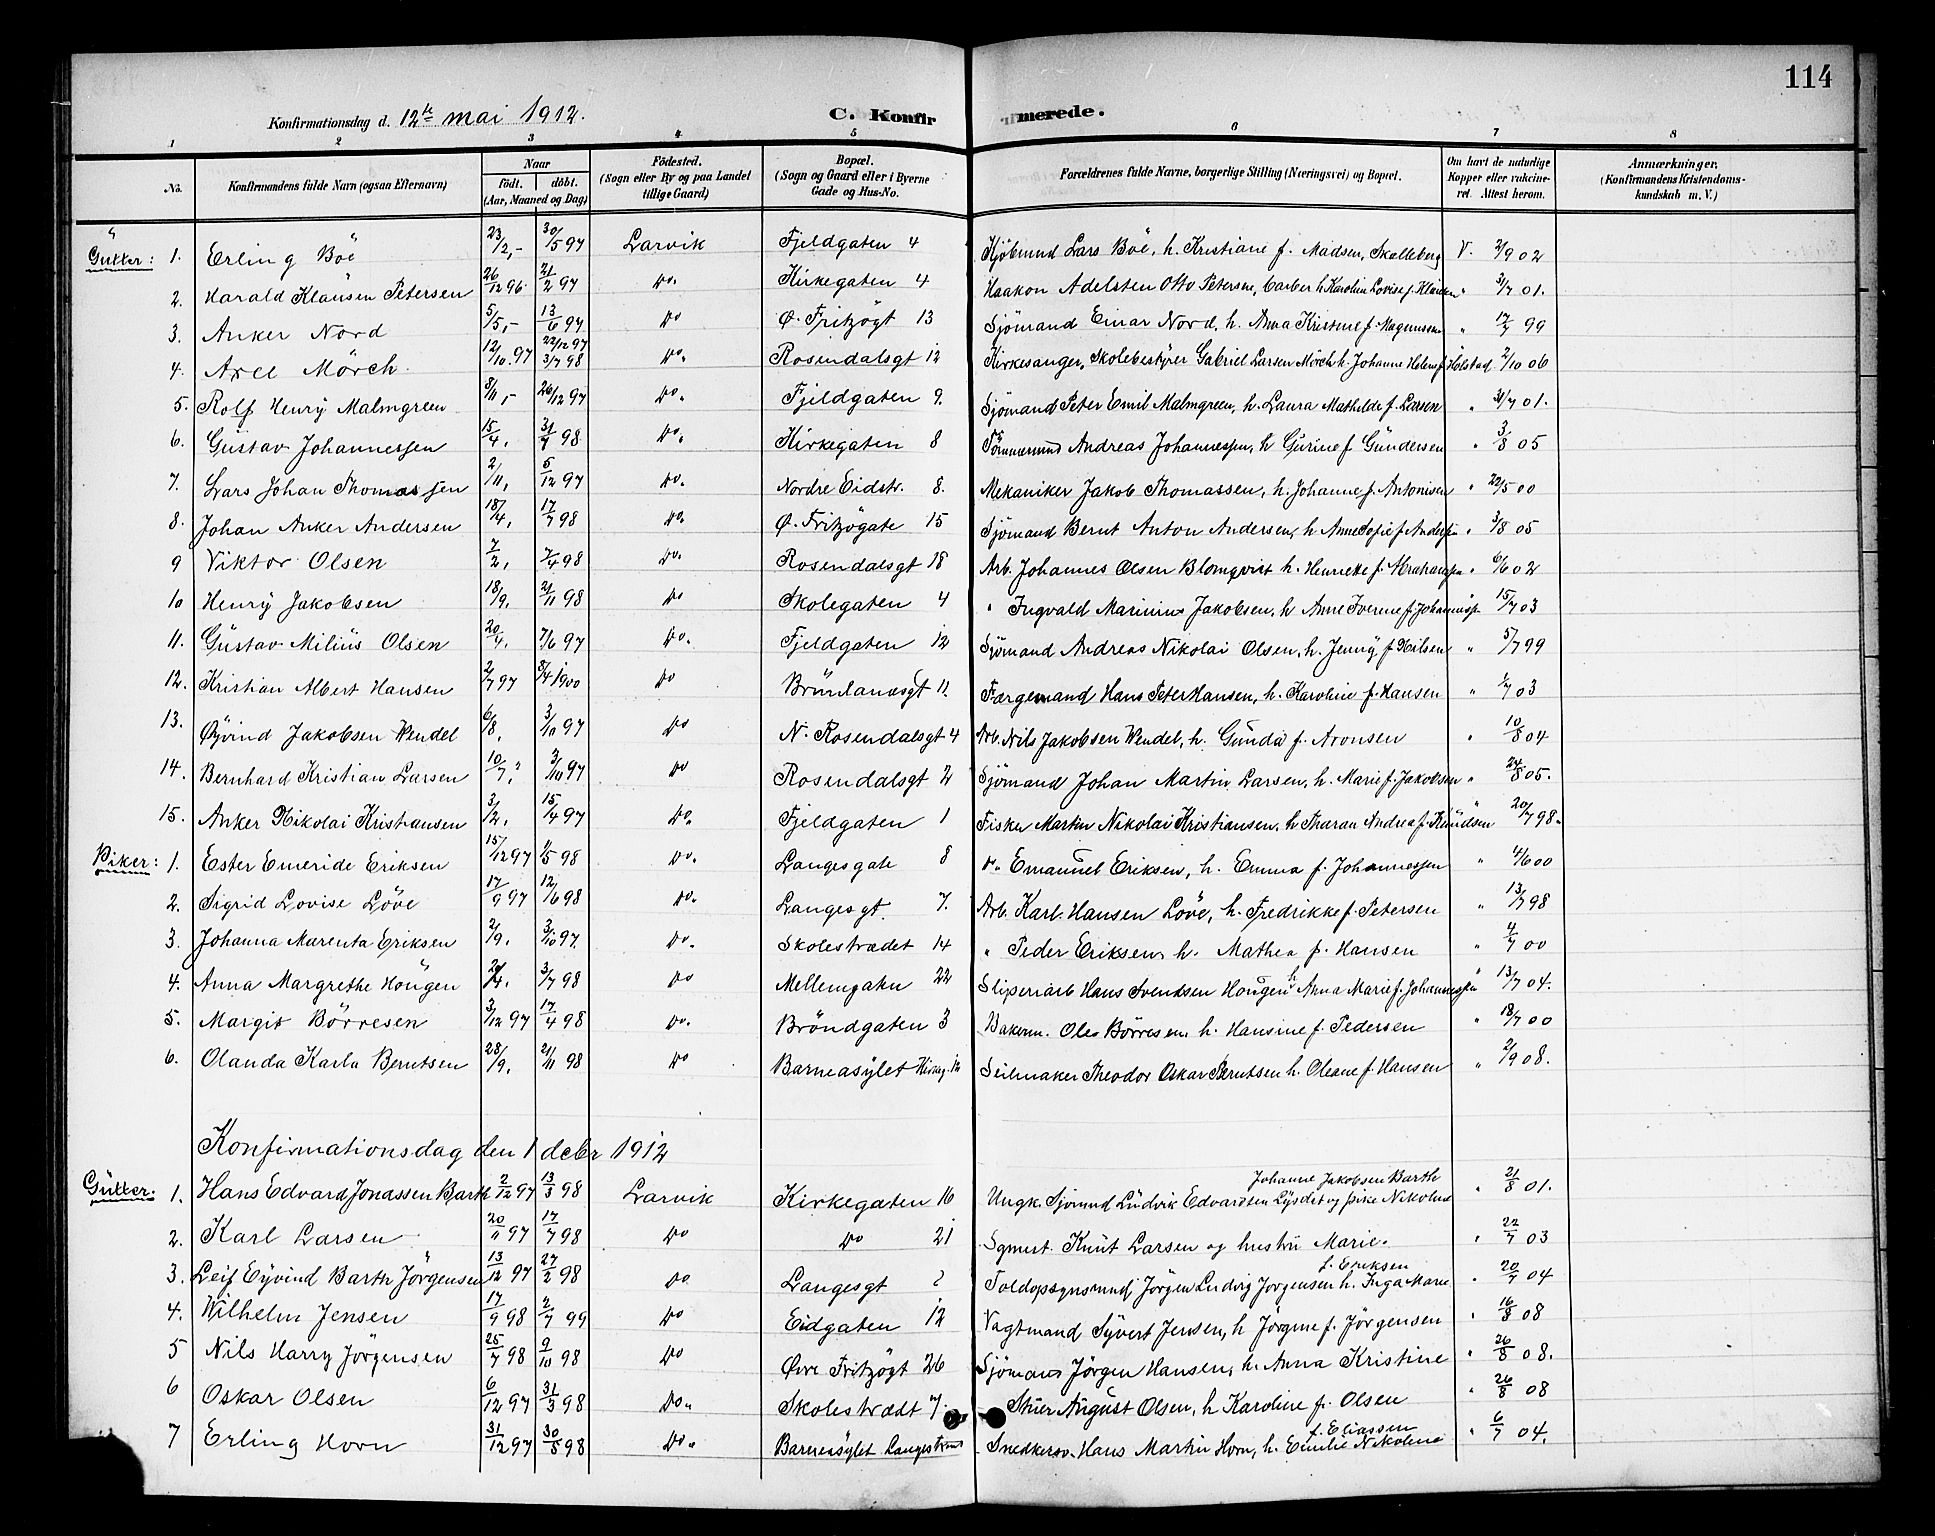 114
Konfirmationsdag d. 12te mai 1912. C. Konfirmerede.
1 2 3 4 5 6 7 8
No. Konfirmandens fulde Navn (ogsaa Efternavn) Naar født. døbt. (Aar, Maaned og Dag) Födested. (Sogn eller By og paa Landet tillige Gaard) Bopæl. (Sogn og Gaard eller i Byerne Gade og Hus-No. Forældrenes fulde Navne, borgerlige Stilling (Næringsvei) og Bopæl. Om havt de naturlige Kopper eller vakcineret. Attest herom. Anmærkninger. (Konfirmandens Kristendomskundskab m. V.)
Gutter: 1. Erling Böe 23/2,- 30/5 97 Larvik Fjeldgaten 4 Kjöbmnd Lars Böe, h. Kristiane f. Madsen, Skalleberg V. 2/9 02
2. Harald Klausen Petersen 26/12 96. 21/2 97 Do. Kirkegaten 4 Haakon Adelsten Otto Petersen, barber h. Karolin Lovise f. Klausen " 3/7 01.
3. Anker Nord 5/5,- 13/6 97 Do Ø. Fritzögt 13 Sjömand Einar Nord, h. Anna Kristine f. Magnussen " 17/7 99
4. Axel Mörch. 12/10. 97 22/12 97 3/7 98 Do. Rosendalsgt 12 Kirkesanger, Skolebestyrer Gabriel Larsen Mörch h. Johanne Helene f. Holstad. 2/10 06
5. Rolf Henry Malmgreen 8/11,- 26/12 97 Do. Fjeldgaten 9. Sjömand Peter Emil Malmgreen, h. Laura Mathilde f. Larsen " 31/7 01.
6. Gustav Johannessen 15/4, 31/7 98 Do. Kirkegaten 8 Tömmermnd Andreas Johannessen, h Gurine f Gundersen " 3/8 05
7. Lars Johan Thomassen 2/11, 5/12 97 Do. Nordre Eidstr. 8. Mekaniker Jakob Thomassen, h. Johanne f. Antonisen " 22/5 00
8. Johan Anker Andersen 18/4, 17/7 98 Do. Ø. Fritzögate 15 Sjömand Bernt Anton Andersen, h Anne Sofie f Andersen " 3/8 05
9 Viktor Olsen 7/2, 7/4 98 Do. Rosendalsgt 18 Arb. Johannes Olsen Blomqvist h. Henriette f. Abrahamsen " 6/6 02
10 Henry Jakobsen 18/9. 21/11 98 Do Skolegaten 4 " Ingvald Marinius Jakobsen, h Anne Iverine f Johannessen 15/7 03
11. Gustav Milius Olsen 20/4. 7/6 97 Do. Fjeldgaten 12 Sjömand Andreas Nikolai Olsen, h. Jenny f Nilsen " 5/7 99
12. Kristian Albert Hansen 2/7 97 3/4 1900 Do 11. Færgemand Hans Peter Hansen, h. Karoline f. Hansen " 03
13. Øyvind Jakobsen Wendel 6/8, 3/10 97 Do N. Rosendalsgt 4 Arb. Nils Jakobsen Wendel, h. Gunda f. Aronsen " 10/8 04
14. Bernhard Kristian Larsen 10/7, 3/10 97 Do Rosendalsgt 2 Sjömand Johan Martin Larsen, h. Marie f. Jakobsen " 24/8 05.
15. Anker Nikolai Kristiansen 3/2, 15/4 97 Do. Fjeldgaten 1 Fisker Martin Nikolai Kristiansen, h Tharan Andrea f. Knudsen " 20/7 98.
Piker: 1. Ester Emeride Eriksen 15/12 97 1/5 98 Do. Langesgate 8 Do. Emanuel Eriksen, h. Emma f. Johannessen " 4/6 00
2. Sigrid Lovise Löve 17/9 97 12/6 98 Do. Langesgt. 7. Arb. Karl Hansen Löve, h. Fredrikke f. Petersen " 13/7 98
3. Johanna Marenta Eriksen 2/9. 3/10 97. Do. Skolestrædet 14 " Peder Eriksen, h. Mathea f. Hansen " 4/7 00
4. Anna Margrethe Hougen 3/7 98 Do Mellemgaten 22 Sliperiarb Hans Svendsen Hougen h Anna Marie f. Johannessen " 13/7 04.
5. Margit Börresen 3/12 97 17/4 98 Do. Bröndgaten 3 Bakerm. Ole Börresen, h. Hansine f. Pedersen " 18/7 00
6. Olanda Karla Berntsen 28/9. 21/11 98 Do Barneasylet Seilmaker Theodor Oskar Berntsen h. Oleane f. Hansen " 2/9 08.
Konfirmationsdag den 1 decbr 1912
Gutter: 1. Hans Edvard Jonassen Barth 2/12 97 13/3 98 Larvik Kirkegaten 16 Ungk. Sjömnd Ludvik Edvardsen Lysdet og pike Nikoline Johanne Jakobsen Barth " 21/8 01.
2. Karl Larsen 20/11 97 17/7 98 Do Do 21 Knut Larsen og hustru Marie. " 22/7 03
3. Leif Eyvind Barth Jörgensen 13/12 97 27/2 98 Do Langesgt 2 Toldopsynsmnd Jörgen Ludvig Jörgensen h. Inga Marie f. Eriksen " 20/7 04
4. Wilhelm Jensen 17/9 98 2/7 99 Do Eidgaten 12 Vagtmand Syvert Jensen, h Jörgine f. Jörgensen " 16/8 08
5 Nils Harry Jörgensen 25/7 98 9/10 98 Do Øvre Fritzögt 26 Sjömand Jörgen Hansen, h. Anna Kristine " 26/8 08.
6 Oskar Olsen 6/12 97 31/3 98 Do. Skolestrædt 7. Stuer August Olsen, h Karoline f. Olsen " 26/8 08
7 Erling Horn 31/12 97 30/5 98 Do. Barneasylet Langestrand Snedkersv. Hans Martin Horn, h. Emilie Nikoline f. Eliassen " 6/7 04.